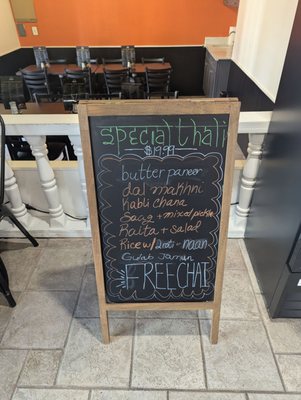 Special thali
$19.99
butter paneer
dal makhni
kabli chana
Saag + mixed pickle
Raita + salad
Rice w/ 2 roti or naan
Gulab Jamun
FREE CHAI